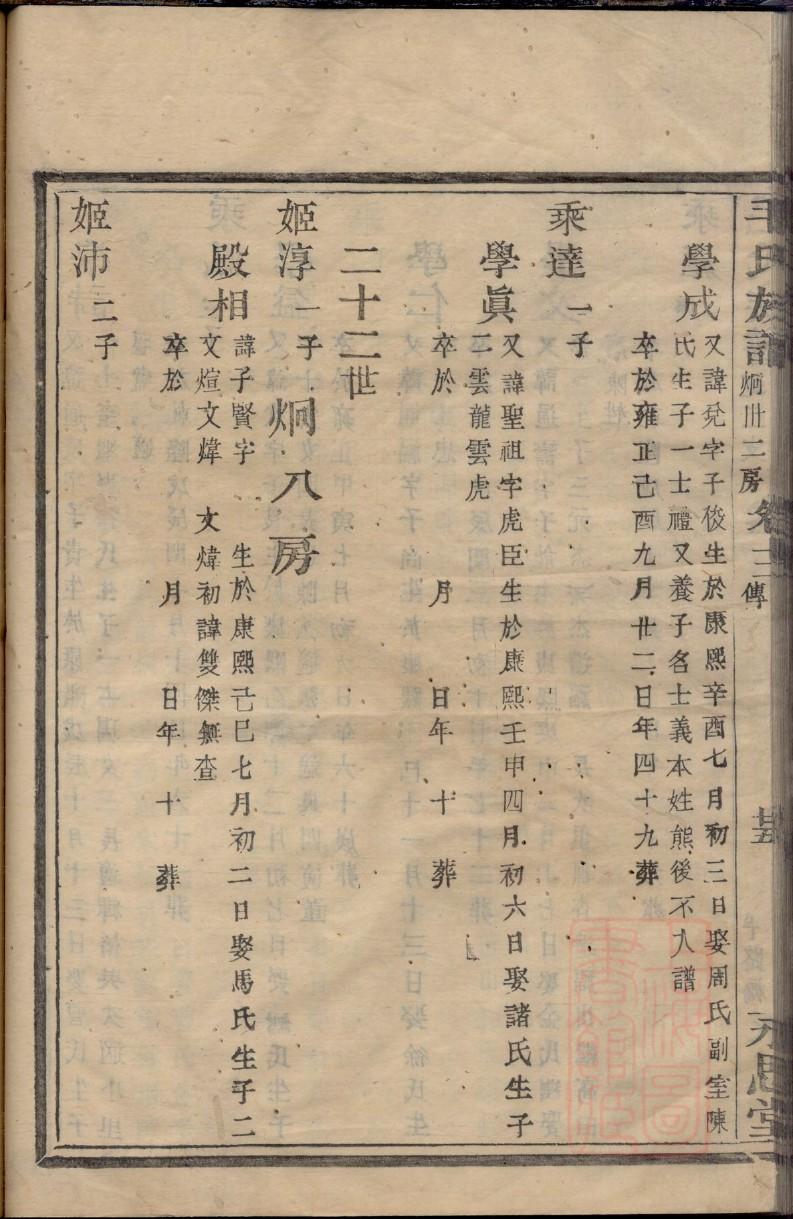 毛氏族譜 炯卅二房 卷十二傳 廿五 永思堂
學成 又諱兊字子俊生於康熙辛酉七月初三日娶周氏副室陳
氏生子一士禮又養子名士義本姓熊後不入譜
卒於雍正己酉九月廿二日年四十九葬
乘達 一子
學眞 又諱聖祖字虎臣生於康熙壬申四月初六日娶諸氏生子
二雲龍雲虎
卒於 月 日年 十 葬
二十二世
姬淳 一子 炯八房
殿相 諱子賢字 生於康熙己巳七月初二日娶馬氏生子二
文煊文煒 文煒初諱雙傑無查
卒於 月 日年 十 葬
姬沛 二子